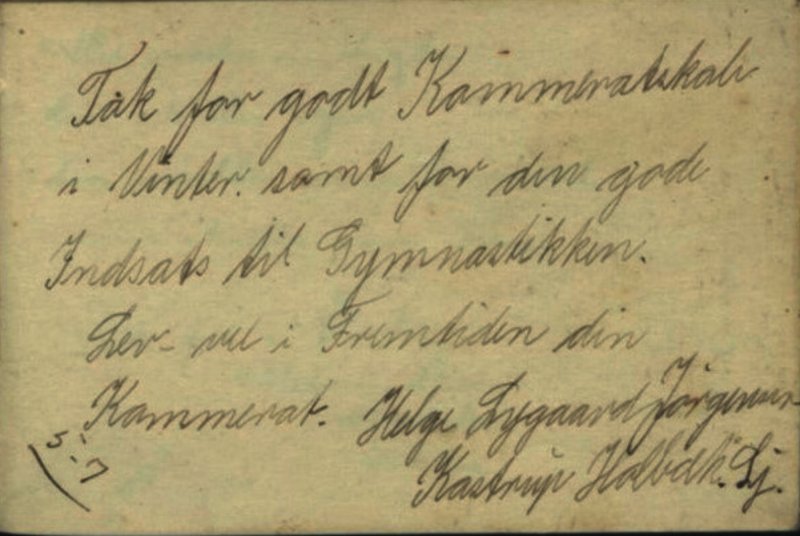 Tak for godt Kammeratskab
i Vinter. samt for den gode
Indsats til Gymnastikken.
Lev- vel i Fremtiden din
Kammerat. Helge Lygaard Jörgensen
5-7 Kastrup